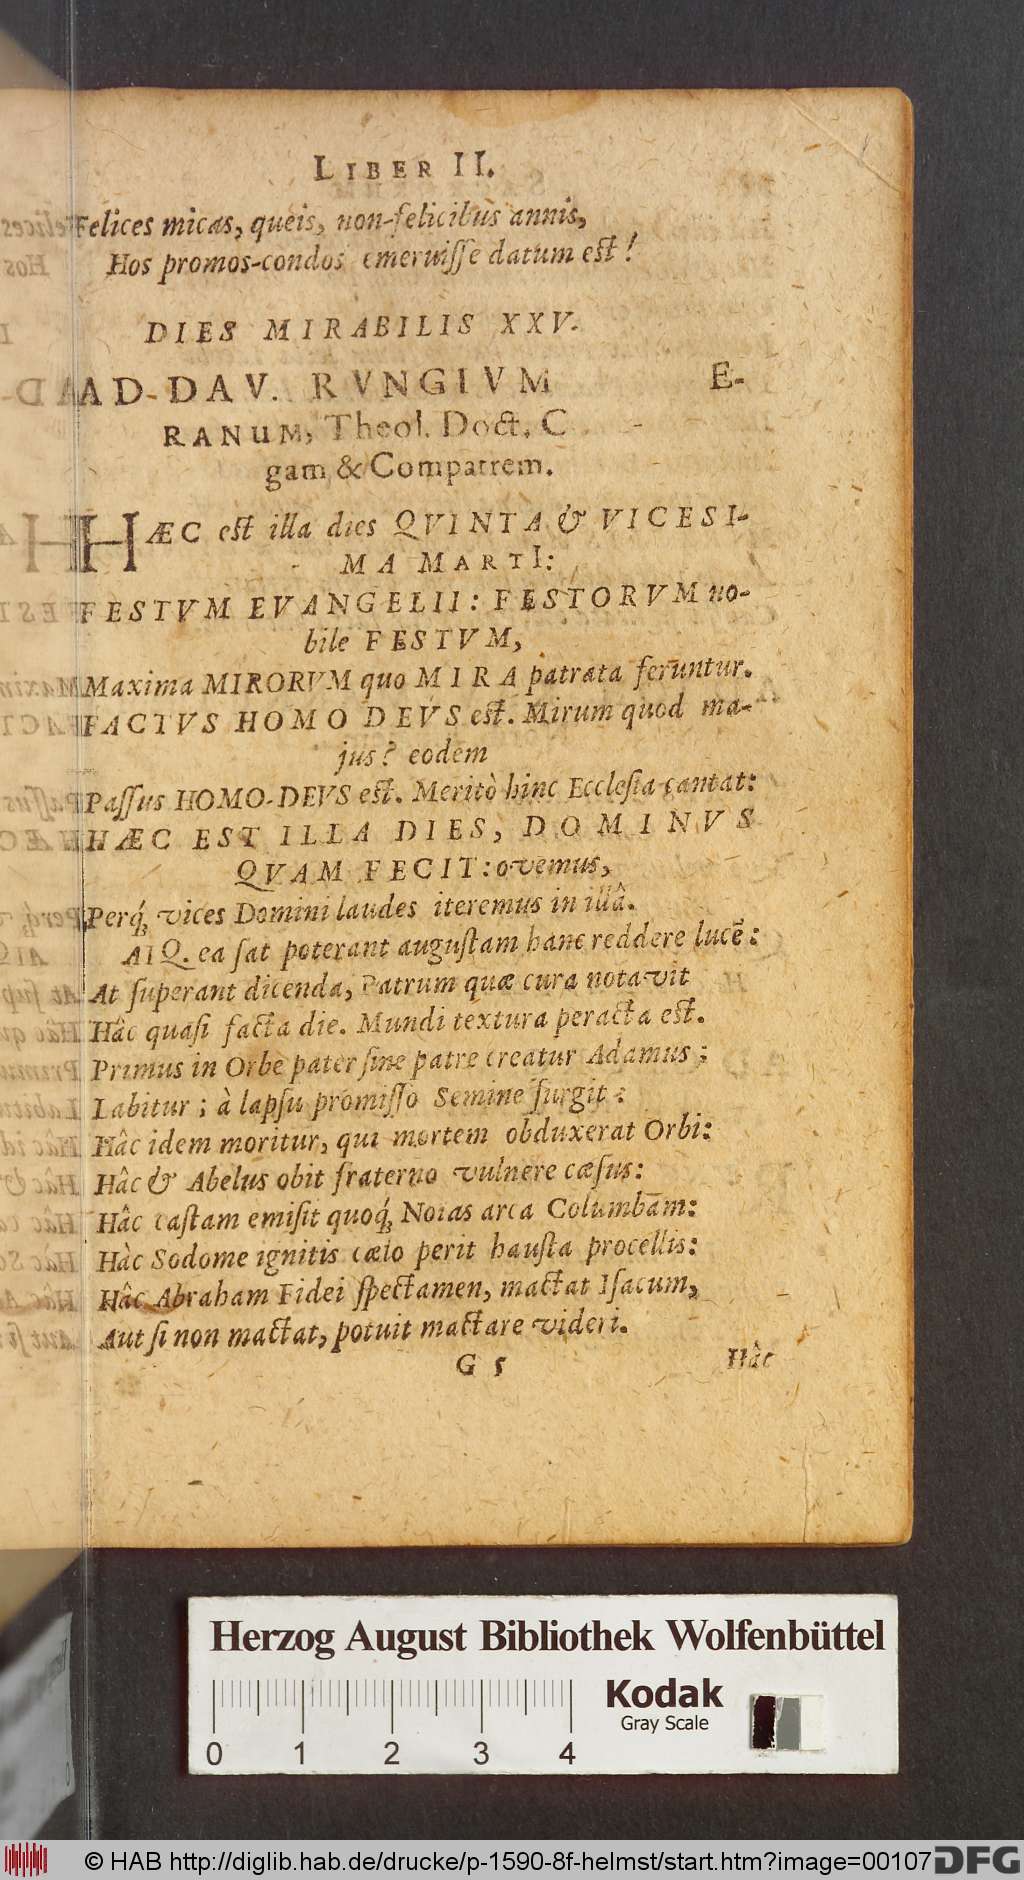 LIBER II.
Felices micas, queis, non-felicibus annis,
Hos promos-condos emeruisse datum est!
DIES MIRABILIS XXV.
AD DAV. RVNGIVM E-
RANUM, Theol. Doct, C
gam & Compatrem.
HÆC est illa dies QVINTA & VICESI-
MA MARTI:
FESTVM EVANGELII: FESTORVM no-
bile FESTVM,
Maxima MIRORVM quo MIRA patrata feruntur.
FACTVS HOMO DEVS est. Mirum quod ma-
jus? eodem
Passus HOMO-DEVS est. Meritò hinc Ecclesia cantat:
HÆC EST ILLA DIES, DOMINVS
QVAM FECIT: ovemus,
Perq́; vices Domini laudes iteremus in illâ.
ATQ. ea sat poterant augustam hanc reddere lucē:
At superant dicenda, Patrum quæ cura notavit
Hâc quasi facta die. Mundi textura peracta est.
Primus in Orbe pater sine patre creatur Adamus;
Labitur; à lapsu promisso Semine surgit:
Hâc idem moritur, qui mortem obduxerat Orbi:
Hâc & Abelus obit fraterno vulnere cæsus:
Hâc castam emisit quoq́; Noias arca Columbam:
Hàc Sodome ignitis cælo perit hausta procellis:
Hâc Abraham Fidei spectamen, mactat Isacum,
Aut si non mactat, potuit mactare videri.
G 5 Hâc
Herzog August Bibliothek Wolfenbüttel
Kodak
Gray Scale
0 1 2 3 4
© HAB http://diglib.hab.de/drucke/p-1590-8f-helmst/start.htm?image=00107
DFG